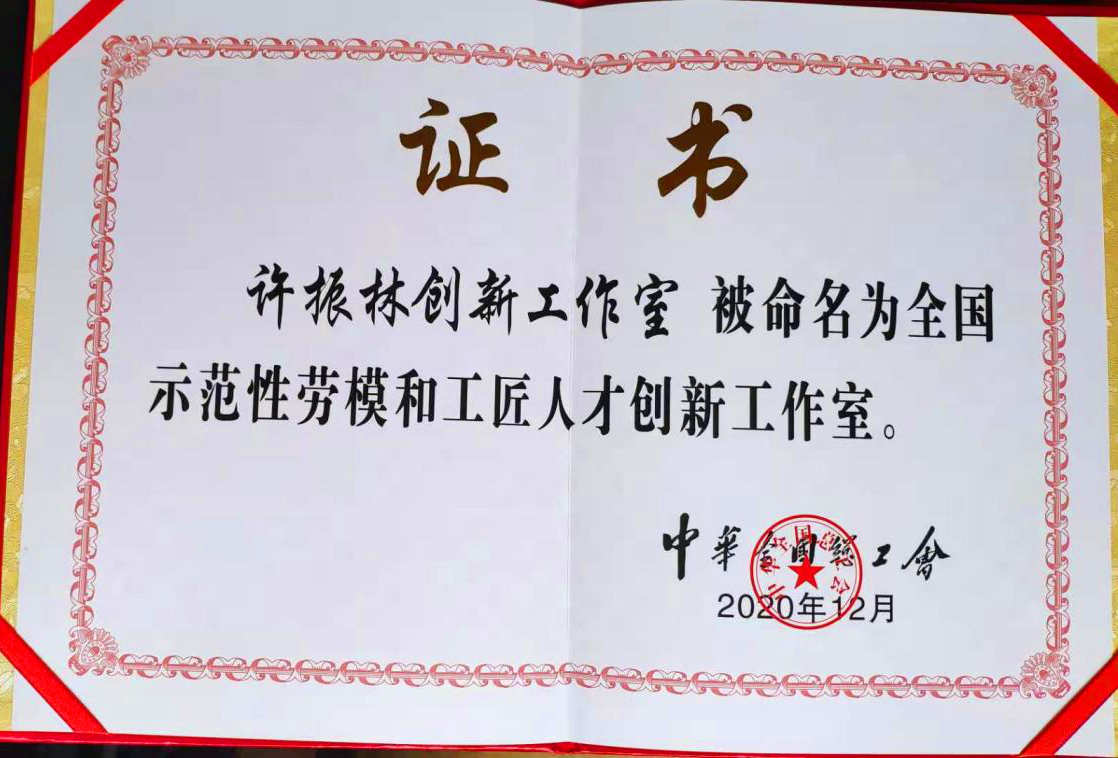 证书
许振林创新工作室 被命名为全国
示范性劳模和工匠人才创新工作室。
中華全国總工會
2020年12月